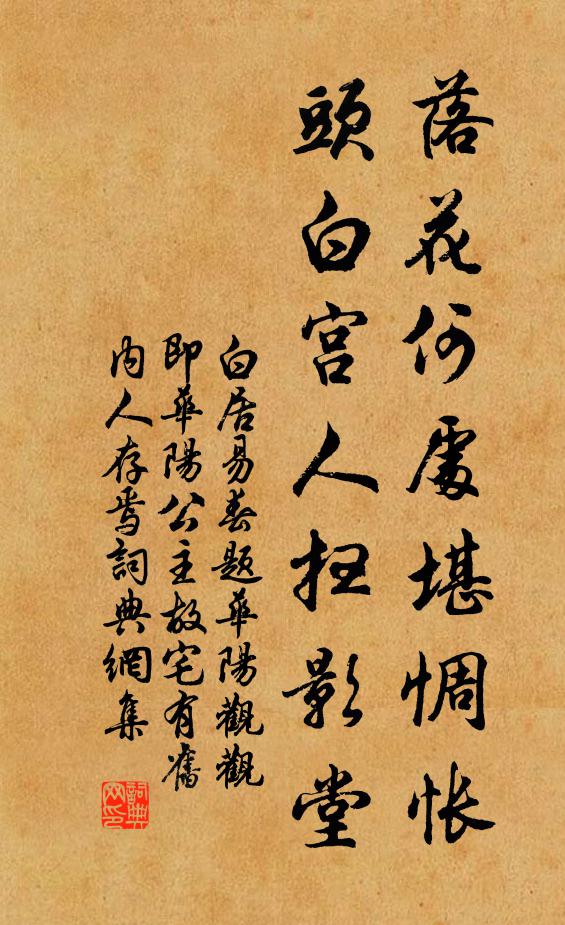 落花何處堪惆帐
頭白宮人扫影堂
白居易春題華陽觀觀
即華陽公主故宅有舊
内人存焉詞典網集
詞典网印